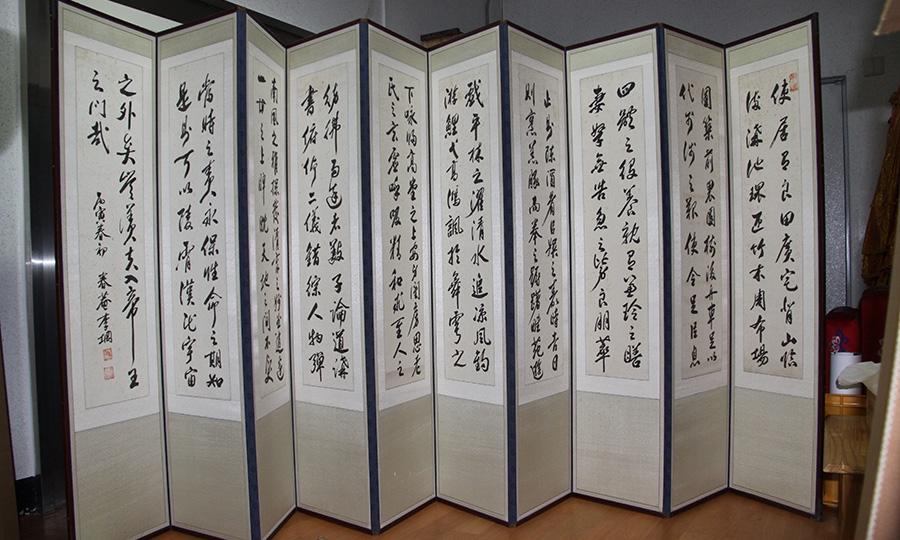 使居有良田廣宅背山臨
流溝池環匝竹木周布場
圃築前果園樹後舟車足以
代步涉之難使令足以息
四體之役養親有兼珍之膳
妻孥無苦身之勞良朋萃
止則陳酒肴以娛之嘉時吉日
則烹羔豚以奉之躊躇畦苑遊
戲平林之濯清水追凉風釣
游鯉弋高鴻諷於舞雩之
下詠歸高堂之上安神閨房思老
氏之玄虛呼吸精和求至人之
彷彿與達者數子論道講
書俯仰二儀錯綜人物彈
南風之雅操發清商之妙曲逍遙
一世之上睥睨天地之間不受
當時之責永保性命之期如
是則可以陵霄漢出宇宙
之外矣豈羨夫入帝王
之門哉
丙寅春初 春菴李